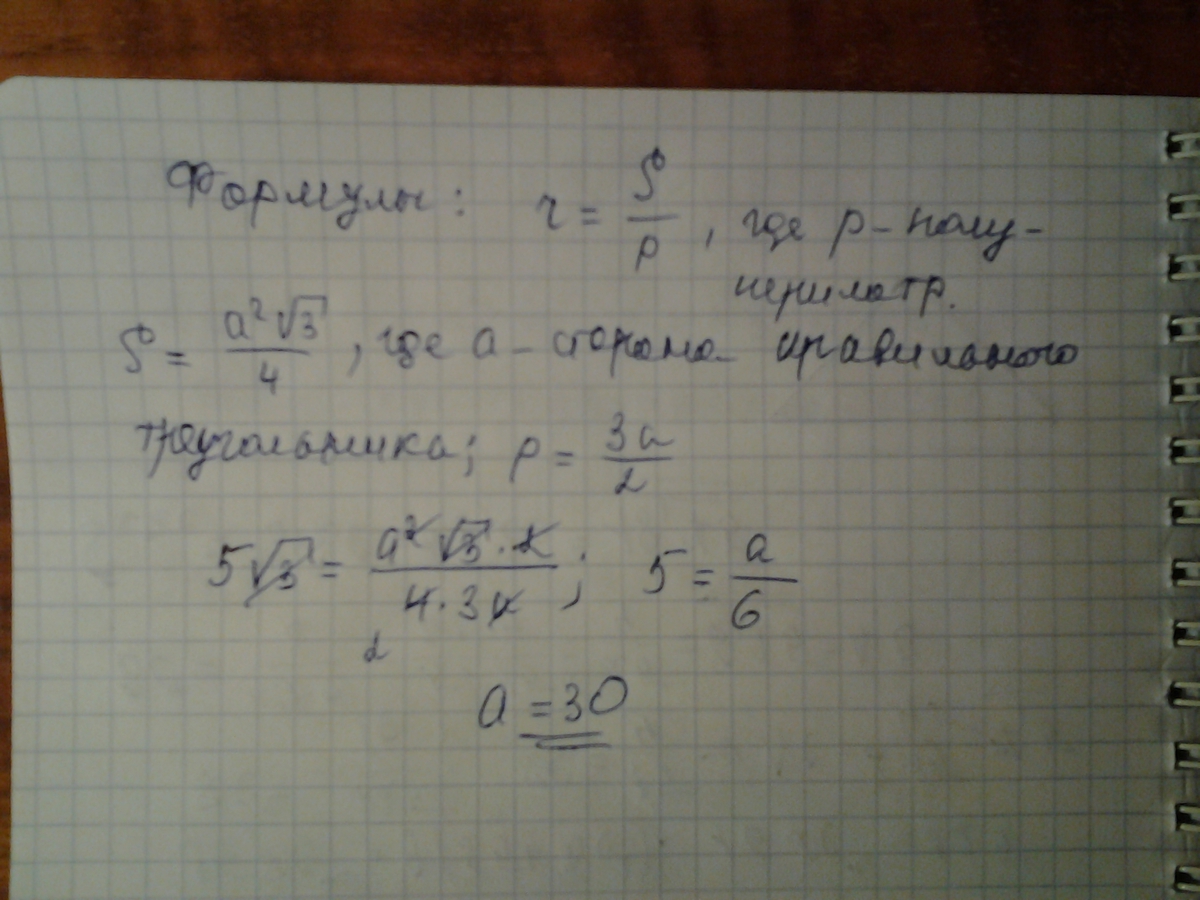 Формулы: r = S/p, где p - полу-
периметр.
S = a²√3/4, где a - сторона правильного
треугольника; p = 3a/2
5√3 = a²√3·2/4·3a; 5 = a/6
2
a = 30